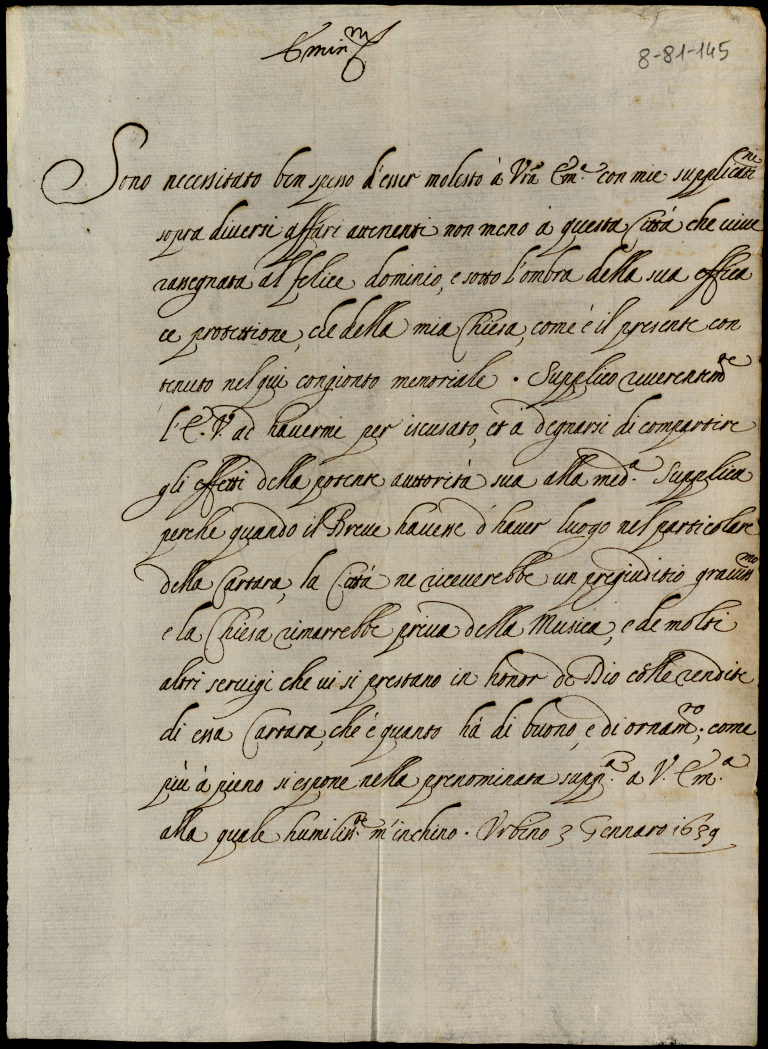 Emin.mo
8-81-145
Sono necessitato ben spesso d'esser molesto à Vrã Em.ª con mie supplicatni
sopra diversi affari attenenti non meno à questa Città che vive
rassegnata al felice dominio, e sotto l'ombra della sua effica
ce protettione, che della mia Chiesa, come è il presente con
tenuto nel qui congionto memoriale. Supplico riverentemte
l'E.V. ad havermi per iscusato, et à degnarsi di compartire
gli effetti della potente auttorità sua alla med.ª Supplica
perche quando il Breve havesse d'haver luogo nel particolare
della Cartara, la Città ne riceverebbe un pregiuditio gravissmo
e la Chiesa rimarrebbe priva della Musica, e de molti
altri servigi che vi si prestano in honor de Dio colle rendite
di essa Cartara, che è quanto hà di buono, e di ornam.to; come
più à pieno si espone nella prenominata supp.ca a V. Em.ª
alla quale humilis.te m'inchino. Urbino 3 Gennaro 1639